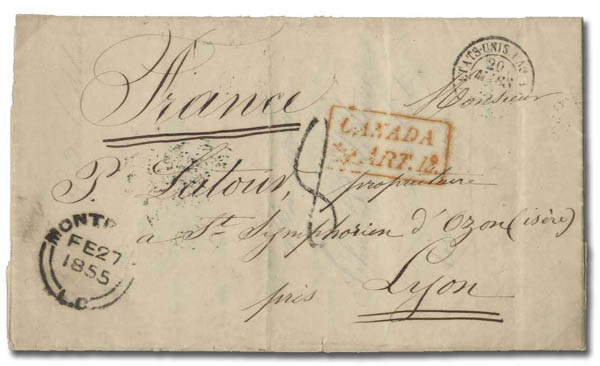 France
ETATS-UNIS
20
MARS
Monsieur
CANADA
ART. 12.
8
P. Latour, propriétaire
à St Symphorien d'Ozon (isère)
près Lyon
MONTR
FE 27
1855
L.C.